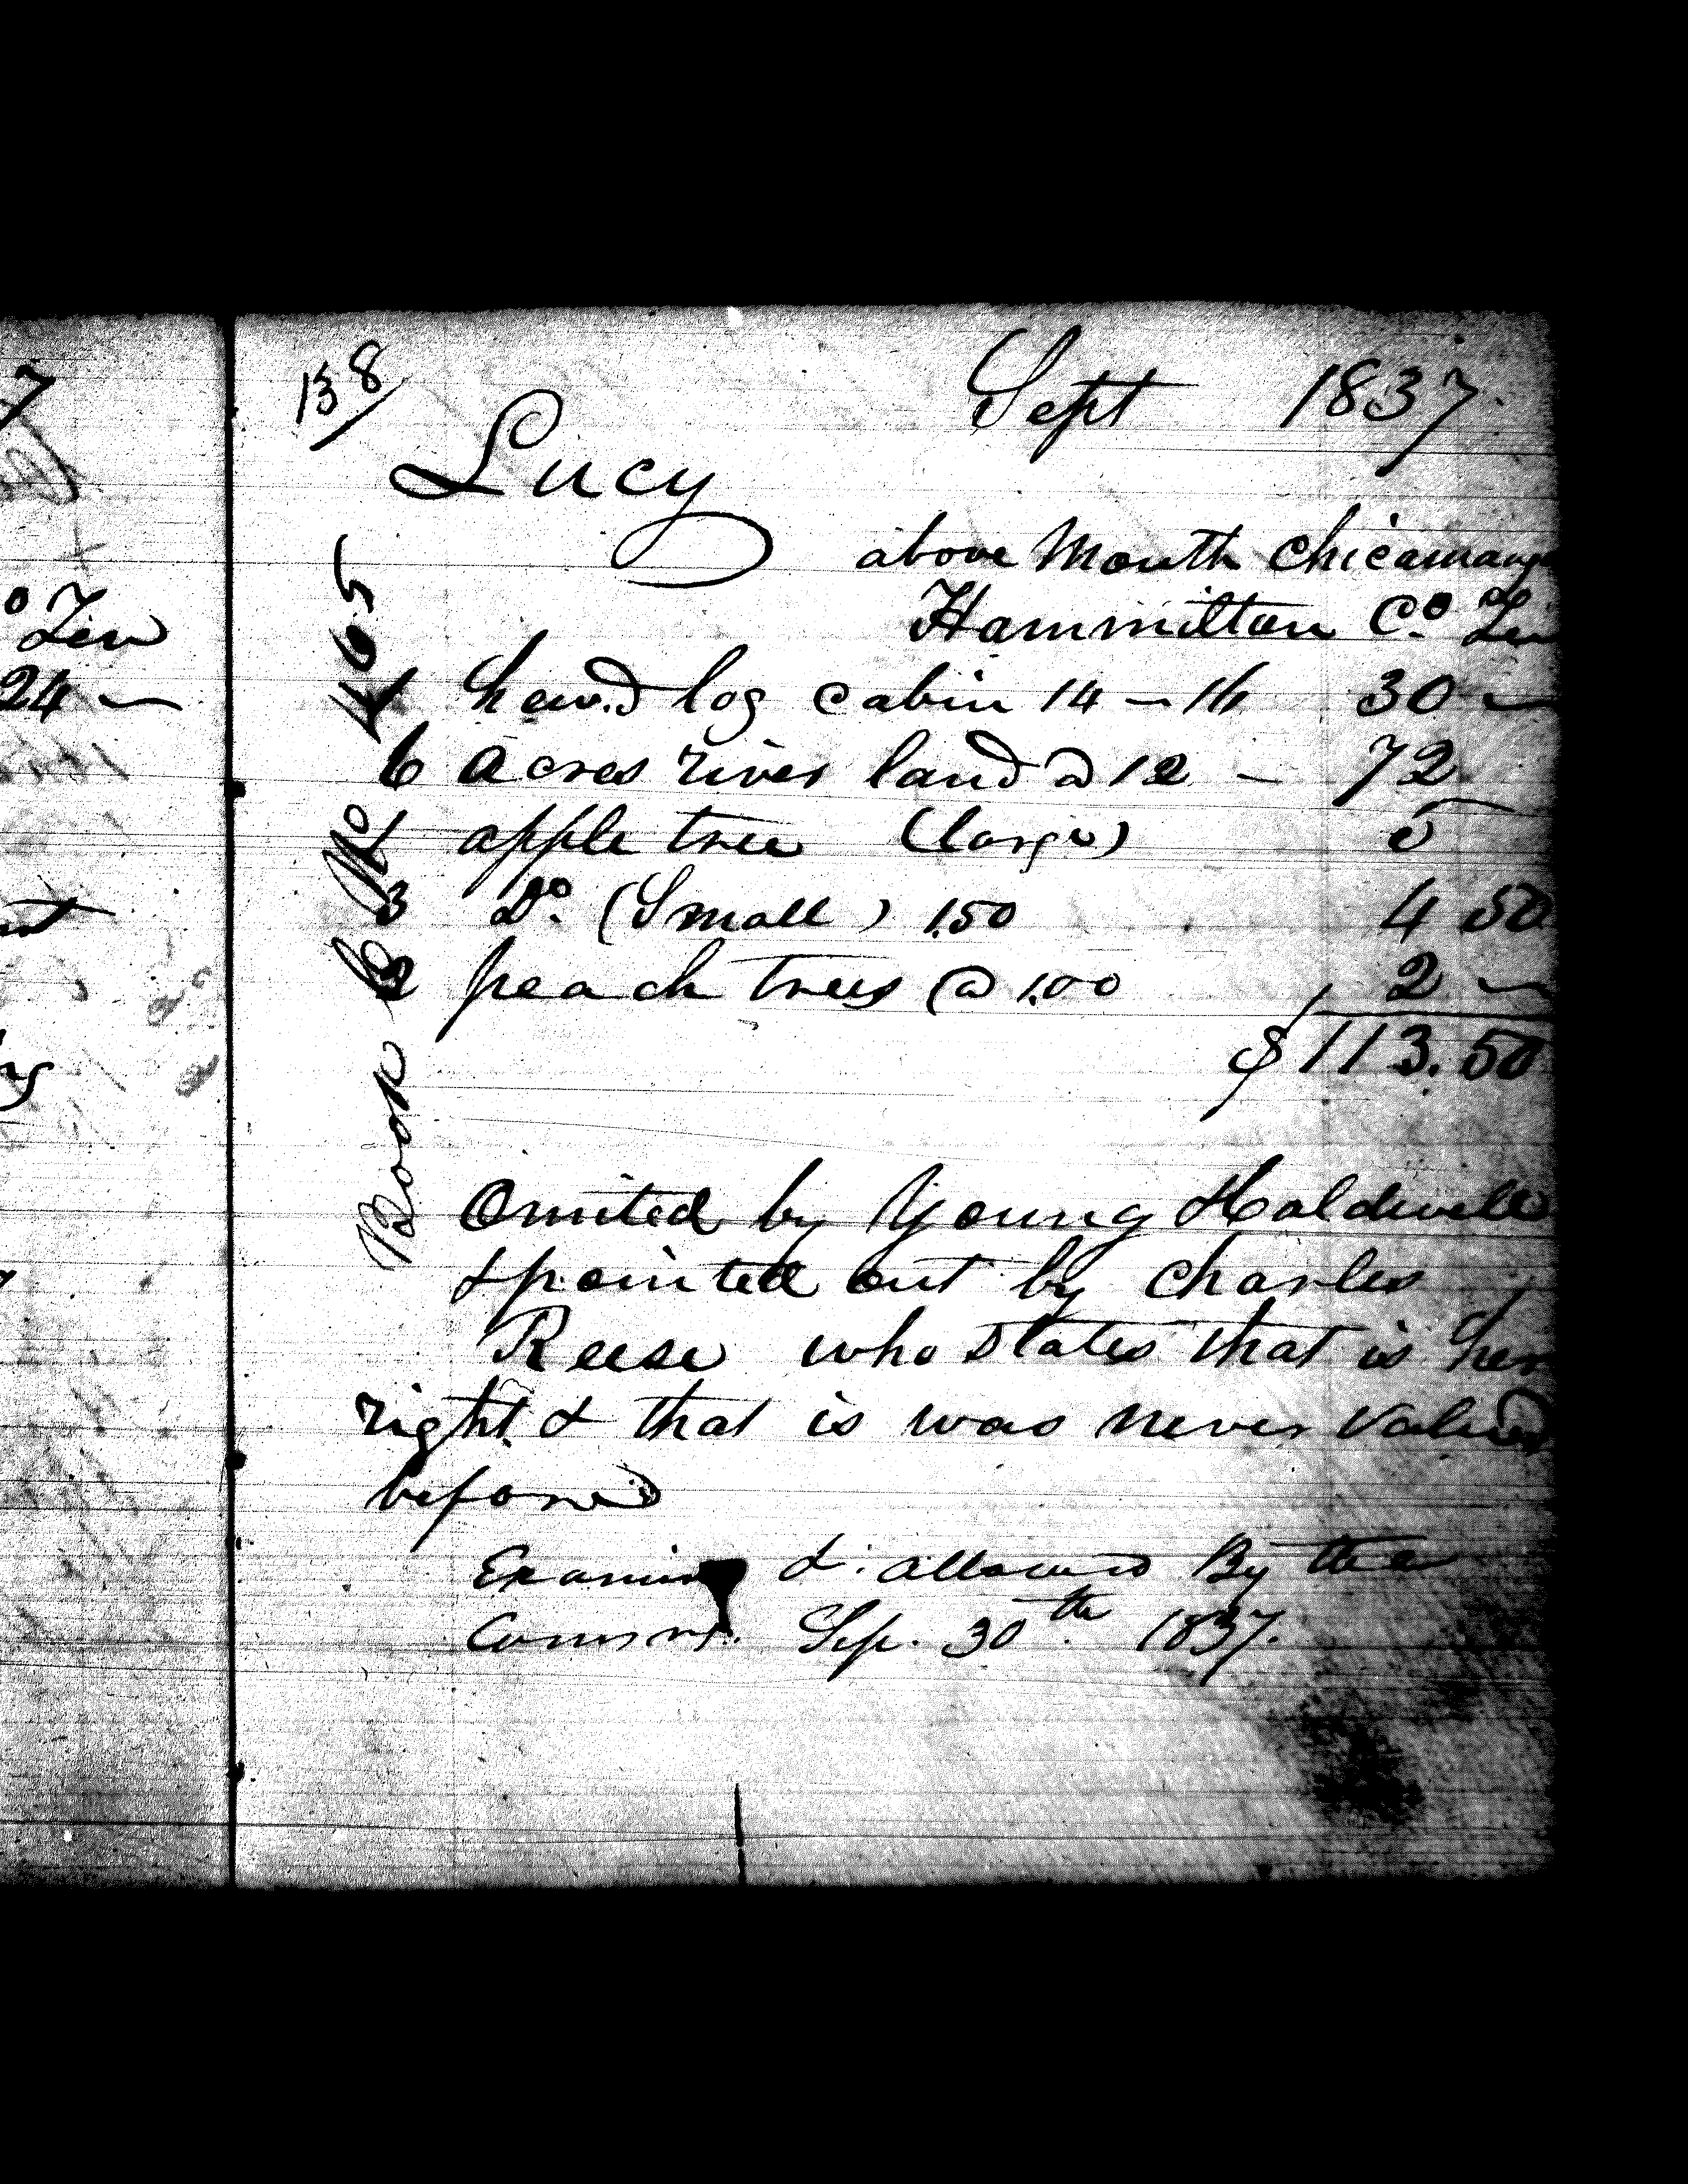 7
o Ten
24 —
158
Sept 1837.
Lucy
above Mouth Chicamaug
Hammilton Co. Ten
1 hew.d log cabin 14 – 16 30 —
6 acres river land @ 12 – 72
1 apple tree (large) 5
3 Do. (Small) 1.50 4 50
2 peach trees @ 1.00 2 —
$113.50
Book B No 405
Omited by Young Holdwell
& pointed out by Charles
Reese who states that is her
right & that is was never valued
before
Examind & allowed By the
Comm. Sep. 30th 1837.